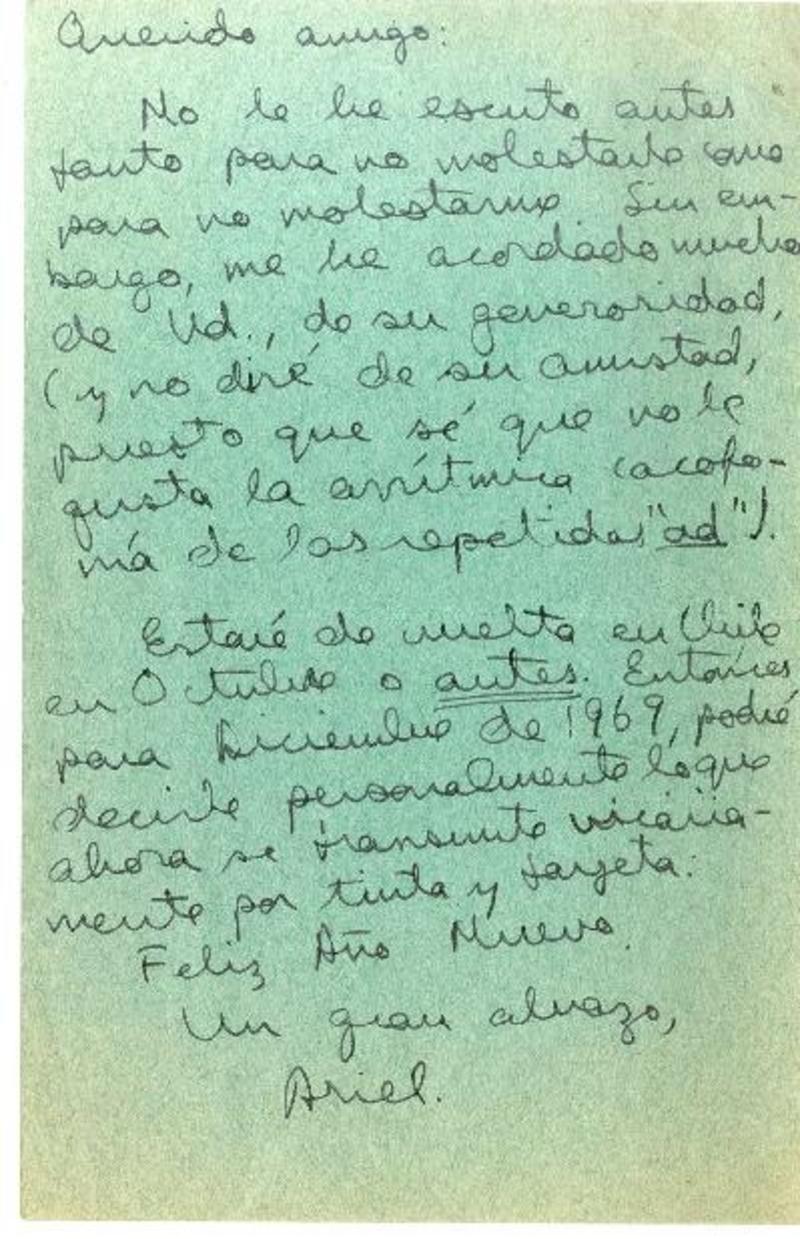 Querido amigo:
No le he escrito antes
tanto para no molestarlo como
para no molestarme. Sin em-
bargo, me he acordado mucho
de Ud., de su generosidad,
(y no diré de su amistad,
puesto que sé que no le
gusta la arrítmica cacofo-
nía de las repetidas "ad").
Estaré de vuelta en Chile
en Octubre o antes. Entonces
para Diciembre de 1969, podré
decirle personalmente lo que
ahora se transmite vicaria-
mente por tinta y tarjeta:
Feliz Año Nuevo.
Un gran abrazo,
Ariel.